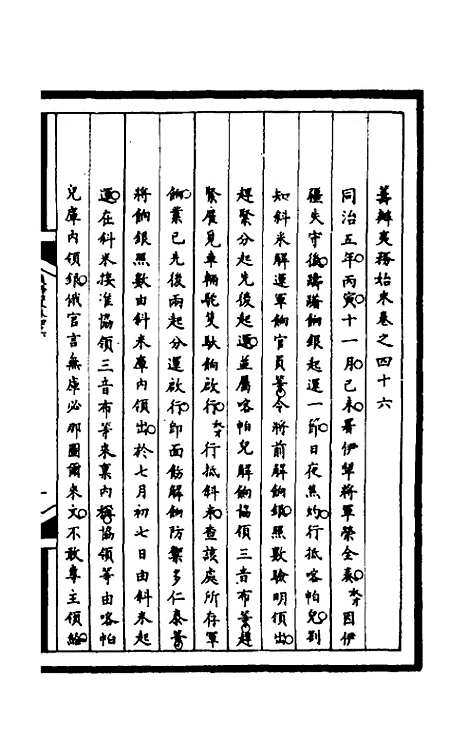 籌辦夷務始末卷之四十六
同治五年丙寅十一月己未署伊犁將軍榮全奏奴才因伊
疆失守後躊躇餉銀起運一節日夜焦灼行抵喀帕兒則
知斜米解運軍餉官員等令將前解餉銀照數驗明領出
趕緊分起先後起運並屬喀帕兒解餉協領三音布等趕
緊雇覓車輛駝隻馱餉啟行奴才行抵斜米查該處所存軍
餉業已先後兩起分運啟行即面飭解餉防禦多仁泰等
將餉銀照數由斜米庫內領出於七月初七日由斜米起
運在斜米接准協領三音布等來稟內稱協領等由喀帕
兒庫內領銀俄官言無庫必那圖爾來文不敢專主領給